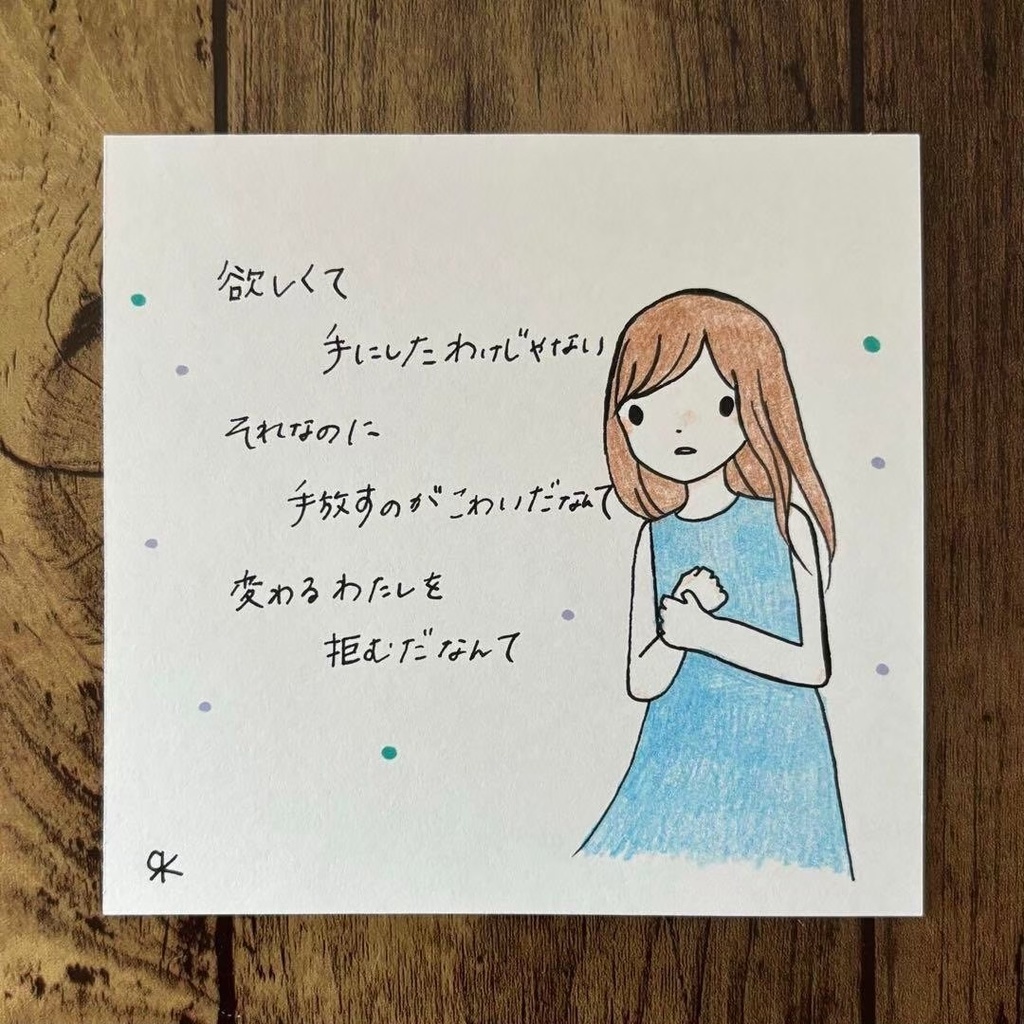 欲しくて
手にしたわけじゃない
それなのに
手放すのがこわいだなんて
変わるわたしを
拒むだなんて